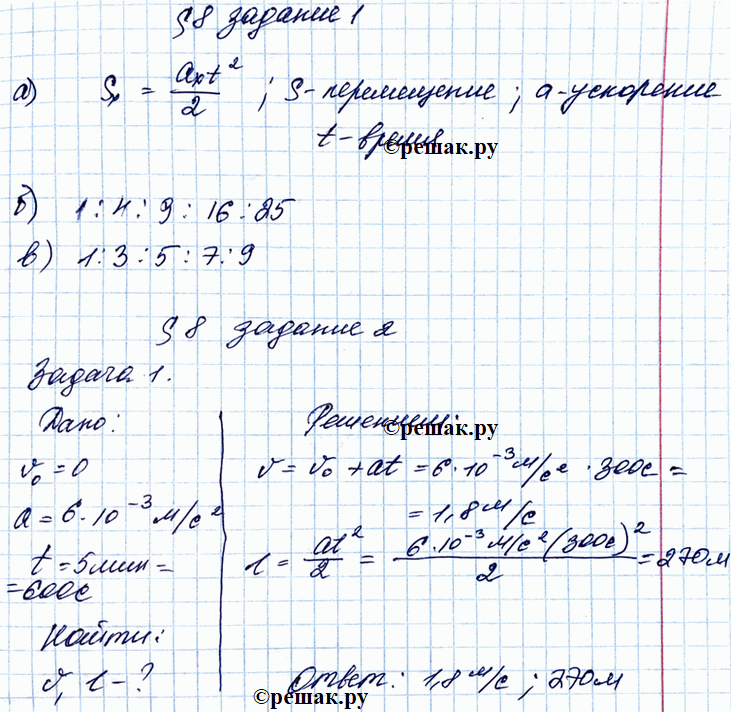 §8 задание 1
а) Sₓ = aₓt²/2 ; S-перемещение ; a-ускорение
t-время
©решак.ру
б) 1:4:9:16:25
в) 1:3:5:7:9
§8 задание 2
Задача 1.
Дано:
v₀ = 0
a = 6·10⁻³ м/с²
t = 5мин =
= 600с
Найти:
v, l - ?
Решение:
©решак.ру
v = v₀ + at = 6·10⁻³ м/с² · 300с =
= 1,8 м/с
l = at²/2 = 6·10⁻³ м/с² (300с)²/2 = 270м
Ответ: 1,8 м/с ; 270м
©решак.ру